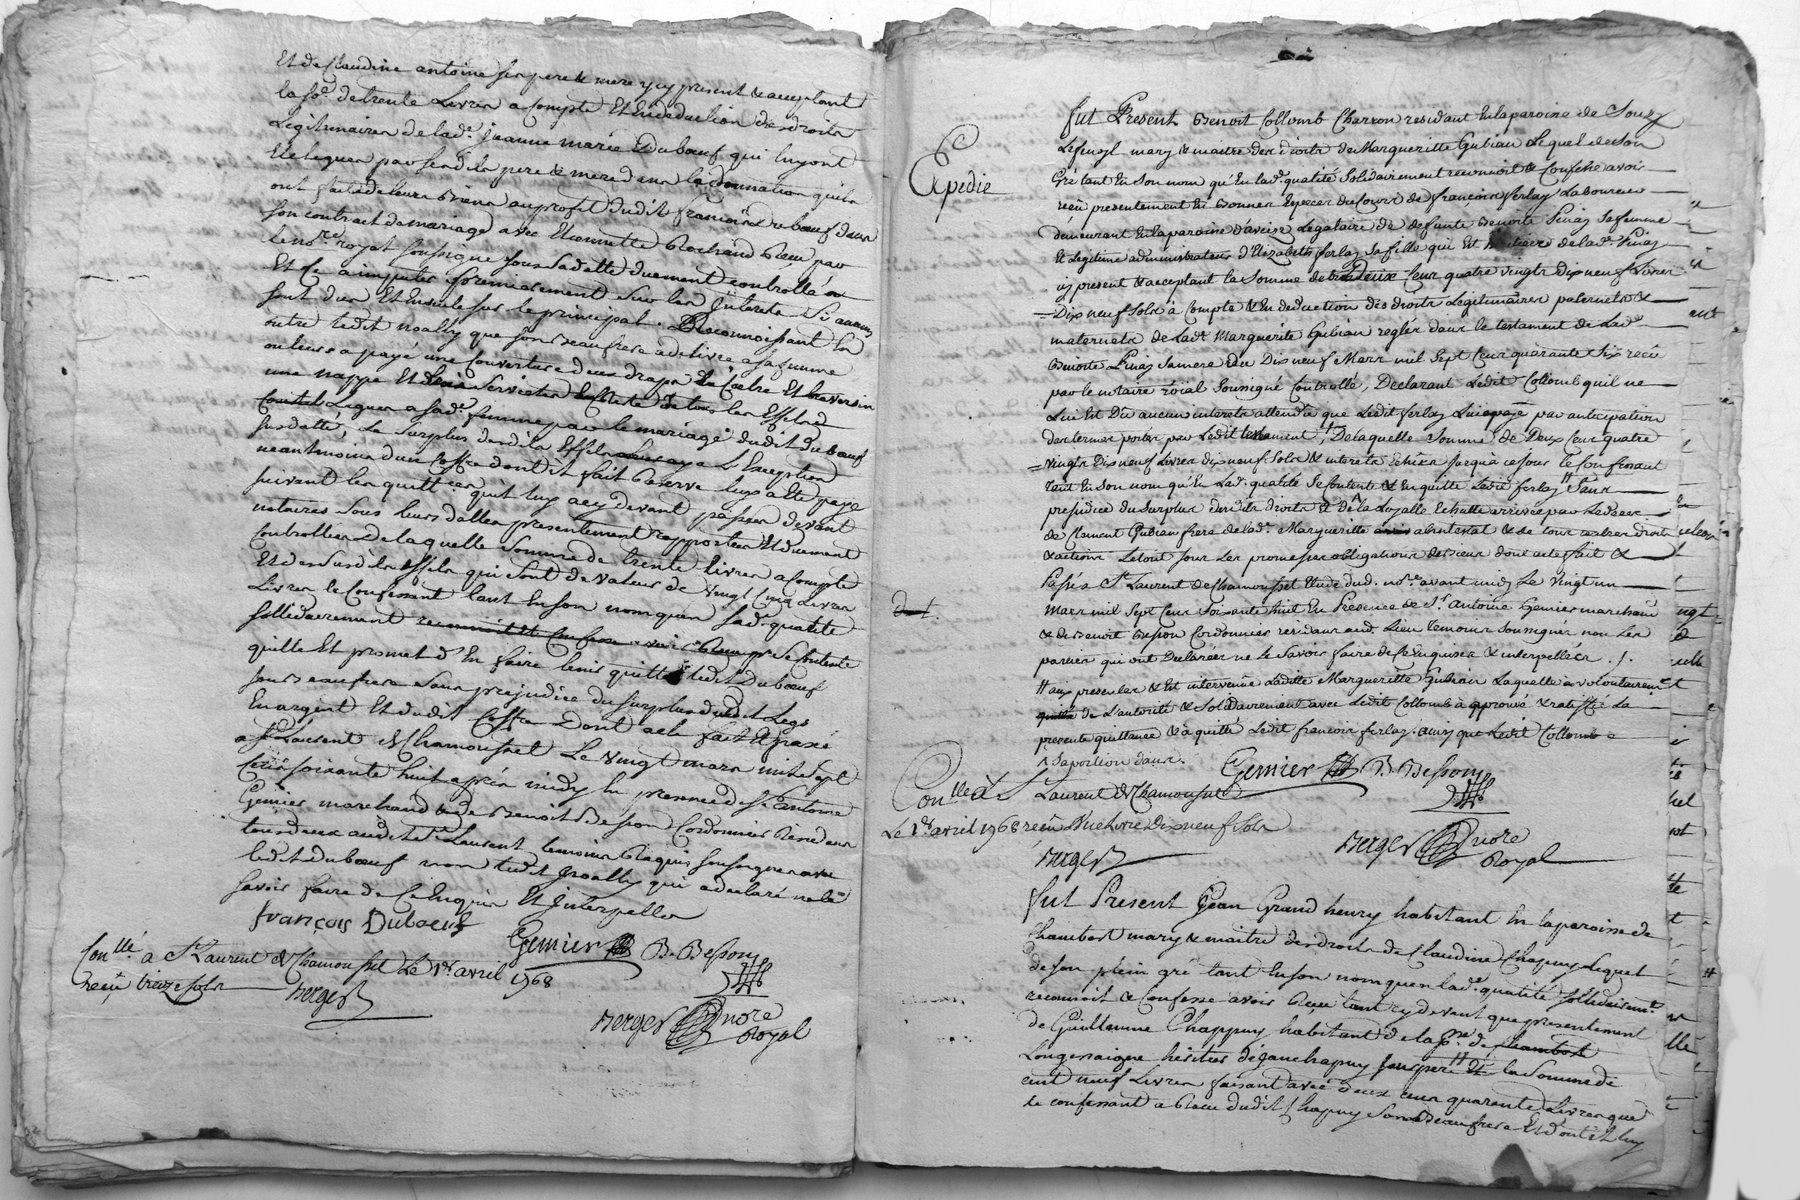 Et de Claudine antoine ses pere & mere icy present & acceptant
la so.e de trente Livres a Compte Et en deduction des droits
Legitimaires de lad.e jeanne marie Duboeuf qui luy ont
Ete legues par lesdits pere & mere dans la donnation qu'ils
ont faite de leurs biens au profit dudit françois Duboeuf dans
son contract de mariage avec Etiennette Rochand Recu par
le no.re royal soussigné sous sa datte duement controllé
Et ce a imputer premierement sur les Interets Si aucuns
sont dus Et Ensuite sur le principal. Reconnoissant En
outre ledit noally que son beaufrere a delivré a sa femme
ou leurs a payé une Couverture deux draps Et traversin
une nappe Et Serviettes de tous les Effets
Constitués Leguer a sad.e femme par le mariage dudit Duboeuf
susdatté, le Surplus desdits Effets a L'exception
neantmoins d'un Coffre dont il fait Reserve luy a Ete payé
suivant les quittances qu'il luy a cy devant passées devant
notaires sous leurs dattes presentement rapportées Et duement
Controllées de laquelle Somme de trente Livres a Compte
Et desdits Effets qui sont de valeur de vingt Cinq Livres
Livres le Confessant tant En son nom qu'en sad. qualité
sollidairement reconnoit Et Confesse avoir Recu Se Contente
quitte Et promet d'En faire tenir quitte ledit Duboeuf
son beaufrere Sans prejudice du Surplus dudit Legs
En argent Et dudit Coffre Dont acte fait Et passé
a St. Laurent de Chamousset Le vingt mars mil Sept
Cent soixante huit apres midy En presence de Sr. antoine
Gemier marchand & de Benoit Besson Cordonnier Residans
tous deux audit St. Laurent temoins Requis soussignes avec
ledit duboeuf non ledit noally qui a declaré ne le
savoir faire de Ce Enquis Et Interpellé
françois Duboeuf
Gemier B. Besson
Con.llé a St Laurent de Chamousset Le 1er avril 1768
recu treize sols
Berger
Berger nore
Royal
Expedié
fut Present Benoit Collomb Charron residant En la paroisse de Souzy
Lequel mary & maitre des droits de Margueritte Gubian Lequel de son
Gré tant En son nom qu'En lad. qualité Solidairement reconnoit & Confesse avoir
recu presentement En Bonnes Especes du Cours de francois ferlay Laboureur
demeurant En la paroisse d'aveize Legataire de defunte Benoite Pinay sa femme
Et Legitime administrateur d'Elizabeth ferlay sa fille qui Est heritiere de lad. Pinay
icy present & acceptant la Somme de Deux Cent quatre vingts Dix neuf Livres
Dix neuf Sols à Compte & En deduction des droits Legitimaires paternels &
maternels de lad.e Margueritte Gubian reglés dans le testament de Lad.e
Benoite Pinay sa mere du Dix neuf Mars mil Sept Cent quarante Six recu
par le notaire roial Soussigné Controllé, Declarant Ledit Collomb qu'il ne
Lui Est Du aucun interets attendu que Ledit ferlay Lui a payé par anticipation
des termes portés par Ledit testament, De laquelle Somme de Deux Cent quatre
vingts Dix neuf Livres dix neuf Sols & interets Echus jusqu'à ce jour le Confessant
tant En son nom qu'En Lad. qualité Se Contente & En quitte Ledit ferlay Sans
prejudice du Surplus desdits droits & de la Loyalle Echutte arrivée par Le deces
de Clement Gubian frere de lad.e Margueritte abintestat & de tous restres droits
& actions Le tout sous Les promesses obligations de Dieux dont acte fait &
Passés St. Laurent de Chamousset Etude dud. no.re avant midy Le vingt un
Mars mil Sept Cent Soixante huit En Presence de Sr. Antoine Gemier marchand
& de Benoit Besson Cordonnier residans aud. Lieu temoins Soussignés non Les
parties qui ont Declarées ne le Savoir faire de ce Enquises & interpellées ./.
# aux presentes & Est intervenüe Laditte Margueritte Gubian Laquelle a volontairem.t
de L'autorité & Solidairement avec Ledit Collomb à approuvé & ratiffié La
presente quittance & a quitté Ledit francois ferlay. ainsy que Ledit Collomb
a Sa portion dans.
Gemier B. Besson
Con.llé a St Laurent de Chamousset
Le 1er avril 1768 recu Une Livre Dix neuf sols
Berger
Berger nore
Royal
fut Present Jean Grand henry habitant En la paroisse de
Chambost mary & maitre des droits de Claudine Chapuy Lequel
de son plein gré tant En son nom qu'en lad. qualité sollidairem.t
reconnoit & Confesse avoir Recu tant cy devant que presentement
de Guillaume Chappuy habitant de la p.sse de Chambost
Longessaigne heritier de jean Chapuy son pere la Somme de
cent neuf Livres faisant avec Deux cens quarante Livres que
le confessant a Recu dudit Chapuy Son Beaufrere Et dont Il luy